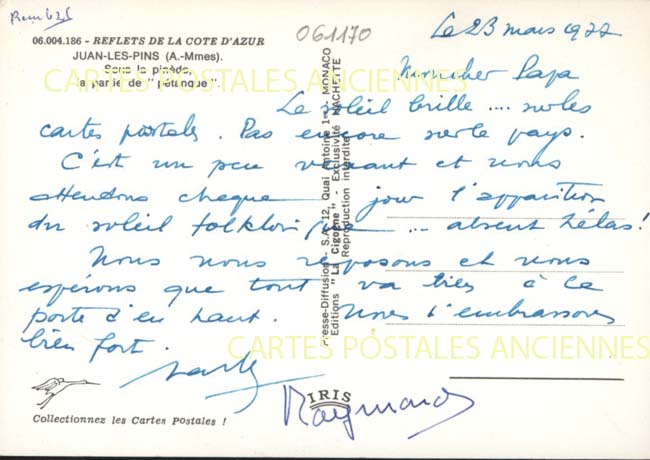 06.004.186 - REFLETS DE LA COTE D'AZUR
JUAN-LES-PINS (A.-Mmes).
Sous la pinède,
la partie de "pétanque".
061170
Le 23 mars 1977
Mon cher Papa
Le soleil brille .... sur les
cartes postales. Pas encore sur le pays.
C'est un peu vexant et nous
attendons chaque jour l'apparition
du soleil folklorique ... absent hélas!
Nous nous reposons et nous
espérons que tout va bien à la
porte d'en haut. Nous t'embrassons
bien fort.
Raymond
Presse-Diffusion - S.A. 12, Quai Antoine 1er MONACO
Editions "La Cigogne" - Exclusivité HACHETTE
Reproduction interdite
IRIS
Collectionnez les Cartes Postales !
CARTES POSTALES ANCIENNES
CARTES POSTALES ANCIENNES